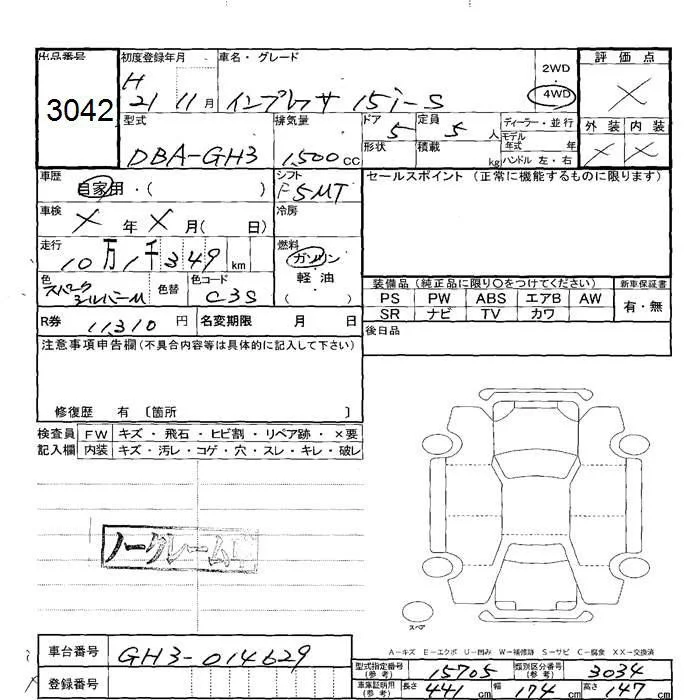 出品番号 初度登録年月 車名・グレード 2WD 評価点
3042 H 21 11月 インプレッサ 15i-S 4WD ×
型式 排気量 ドア 定員 ディーラー・並行 外装 内装
DBA-GH3 1,500CC 5 5人 モデル年式 年 × ×
形状 積載 kg ハンドル 左・右
車歴 シフト セールスポイント(正常に機能するものに限ります)
自家用・( ) F5MT
車検 冷房
×年×月( 日)
走行 燃料
10万1千349km ガソリン
色 色替 色コード 軽油
スパークシルバーM C3S ( )
装備品(純正品に限り○をつけてください) 新車保証書
PS PW ABS エアB AW 有・無
SR ナビ TV カワ
R券 11310円 名変期限 月 日
後日品
注意事項申告欄(不具合内容等は具体的に記入して下さい)
修復歴 有 〔箇所 〕
検査員 FW キズ・飛石・ヒビ割・リペア跡・×要
記入欄 内装 キズ・汚レ・コゲ・穴・スレ・キレ・破レ
ノークレーム
スペア
A-キズ E-エクボ U-凹み W-補修跡 S-サビ C-腐食 XX-交換済
車台番号 GH3-014629
登録番号
型式指定番号(参考) 15705 類別区分番号(参考) 3034
車庫証明用(参考) 長さ 441cm 幅 174cm 高さ 147cm